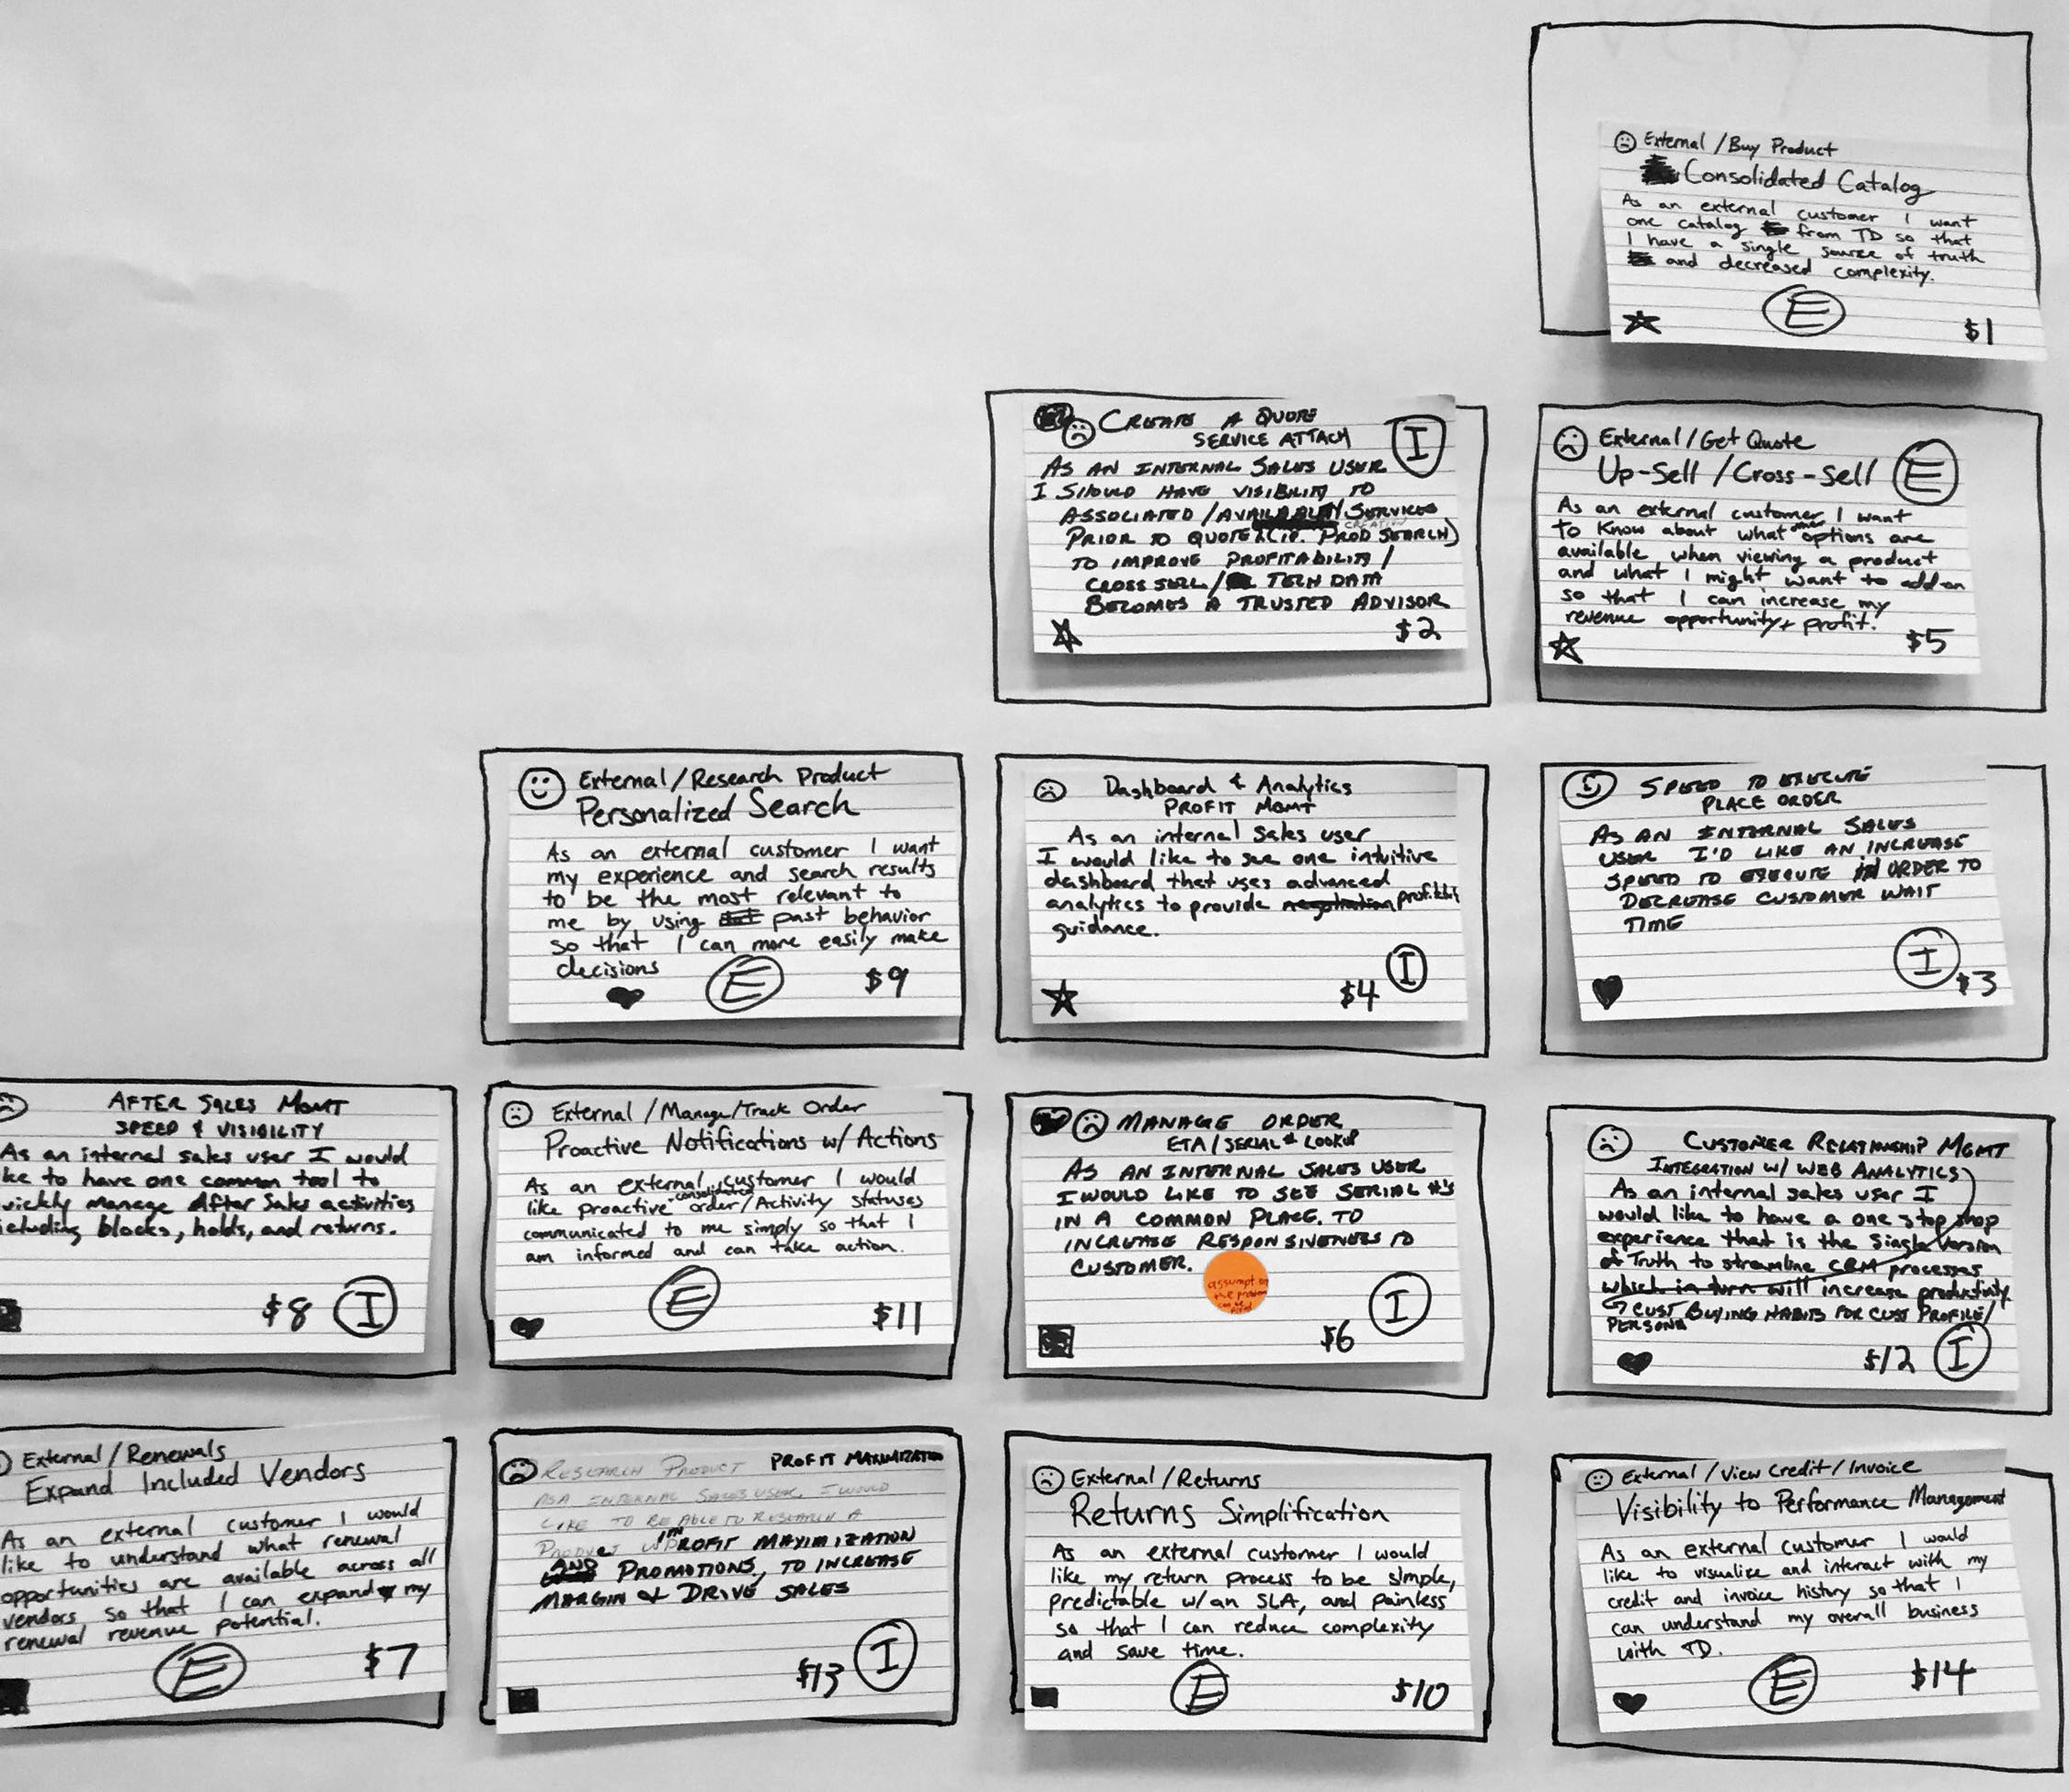 External / Buy Product
Consolidated Catalog
As an external customer I want
one catalog from TD so that
I have a single source of truth
and decreased complexity.
E
$1
CREATE A QUOTE
SERVICE ATTACH
I
AS AN INTERNAL SALES USER
I SHOULD HAVE VISIBILITY TO
ASSOCIATED / SERVICES
PRIOR TO QUOTE CREATION (IE. PROD SEARCH)
TO IMPROVE PROFITABILITY /
CROSS SELL / TECH DATA
BECOMES A TRUSTED ADVISOR
$2
External / Get Quote
Up-Sell / Cross-Sell
E
As an external customer I want
to know about what other options are
available when viewing a product
and what I might want to add on
so that I can increase my
revenue opportunity + profit.
$5
External / Research Product
Personalized Search
As an external customer I want
my experience and search results
to be the most relevant to
me by using past behavior
so that I can more easily make
decisions
E
$9
Dashboard & Analytics
PROFIT MGMT
As an internal sales user
I would like to see one intuitive
dashboard that uses advanced
analytics to provide negotiation
guidance.
I
$4
SPEED TO EXECUTE
PLACE ORDER
AS AN INTERNAL SALES
USER I'D LIKE AN INCREASE
SPEED TO EXECUTE IN ORDER TO
DECREASE CUSTOMER WAIT
TIME
I
$3
AFTER SALES MGMT
SPEED & VISIBILITY
As an internal sales user I would
ke to have one common tool to
uickly manage After Sales activities
cluding blocks, holds, and returns.
$8
I
External / Manage/Track Order
Proactive Notifications w/ Actions
As an external customer I would
like proactive consolidated order/Activity statuses
communicated to me simply so that I
am informed and can take action.
E
$11
MANAGE ORDER
ETA / SERIAL # LOOKUP
AS AN INTERNAL SALES USER
I WOULD LIKE TO SEE SERIAL #'S
IN A COMMON PLACE. TO
INCREASE RESPONSIVENESS TO
CUSTOMER.
the problem
can be
I
$6
CUSTOMER RELATIONSHIP MGMT
INTEGRATION W/ WEB ANALYTICS
As an internal sales user I
would like to have a one stop shop
experience that is the Single Version
of Truth to streamline CRM processes
which in turn will increase productivity.
CUST BUYING HABITS FOR CUST PROFILE/
PERSONA
$12
I
External / Renewals
Expand Included Vendors
As an external customer I would
like to understand what renewal
opportunities are available across all
vendors so that I can expand my
renewal revenue potential.
E
$7
RESEARCH PRODUCT PROFIT MAXIMIZATION
AS A INTERNAL SALES USER, I WOULD
LIKE TO BE ABLE TO RESEARCH A
PRODUCT WITH PROFIT MAXIMIZATION
AND PROMOTIONS, TO INCREASE
MARGIN & DRIVE SALES
$13
I
External / Returns
Returns Simplification
As an external customer I would
like my return process to be simple,
predictable w/ an SLA, and painless
so that I can reduce complexity
and save time.
E
$10
External / View Credit / Invoice
Visibility to Performance Management
As an external customer I would
like to visualize and interact with my
credit and invoice history so that I
can understand my overall business
with TD.
E
$14